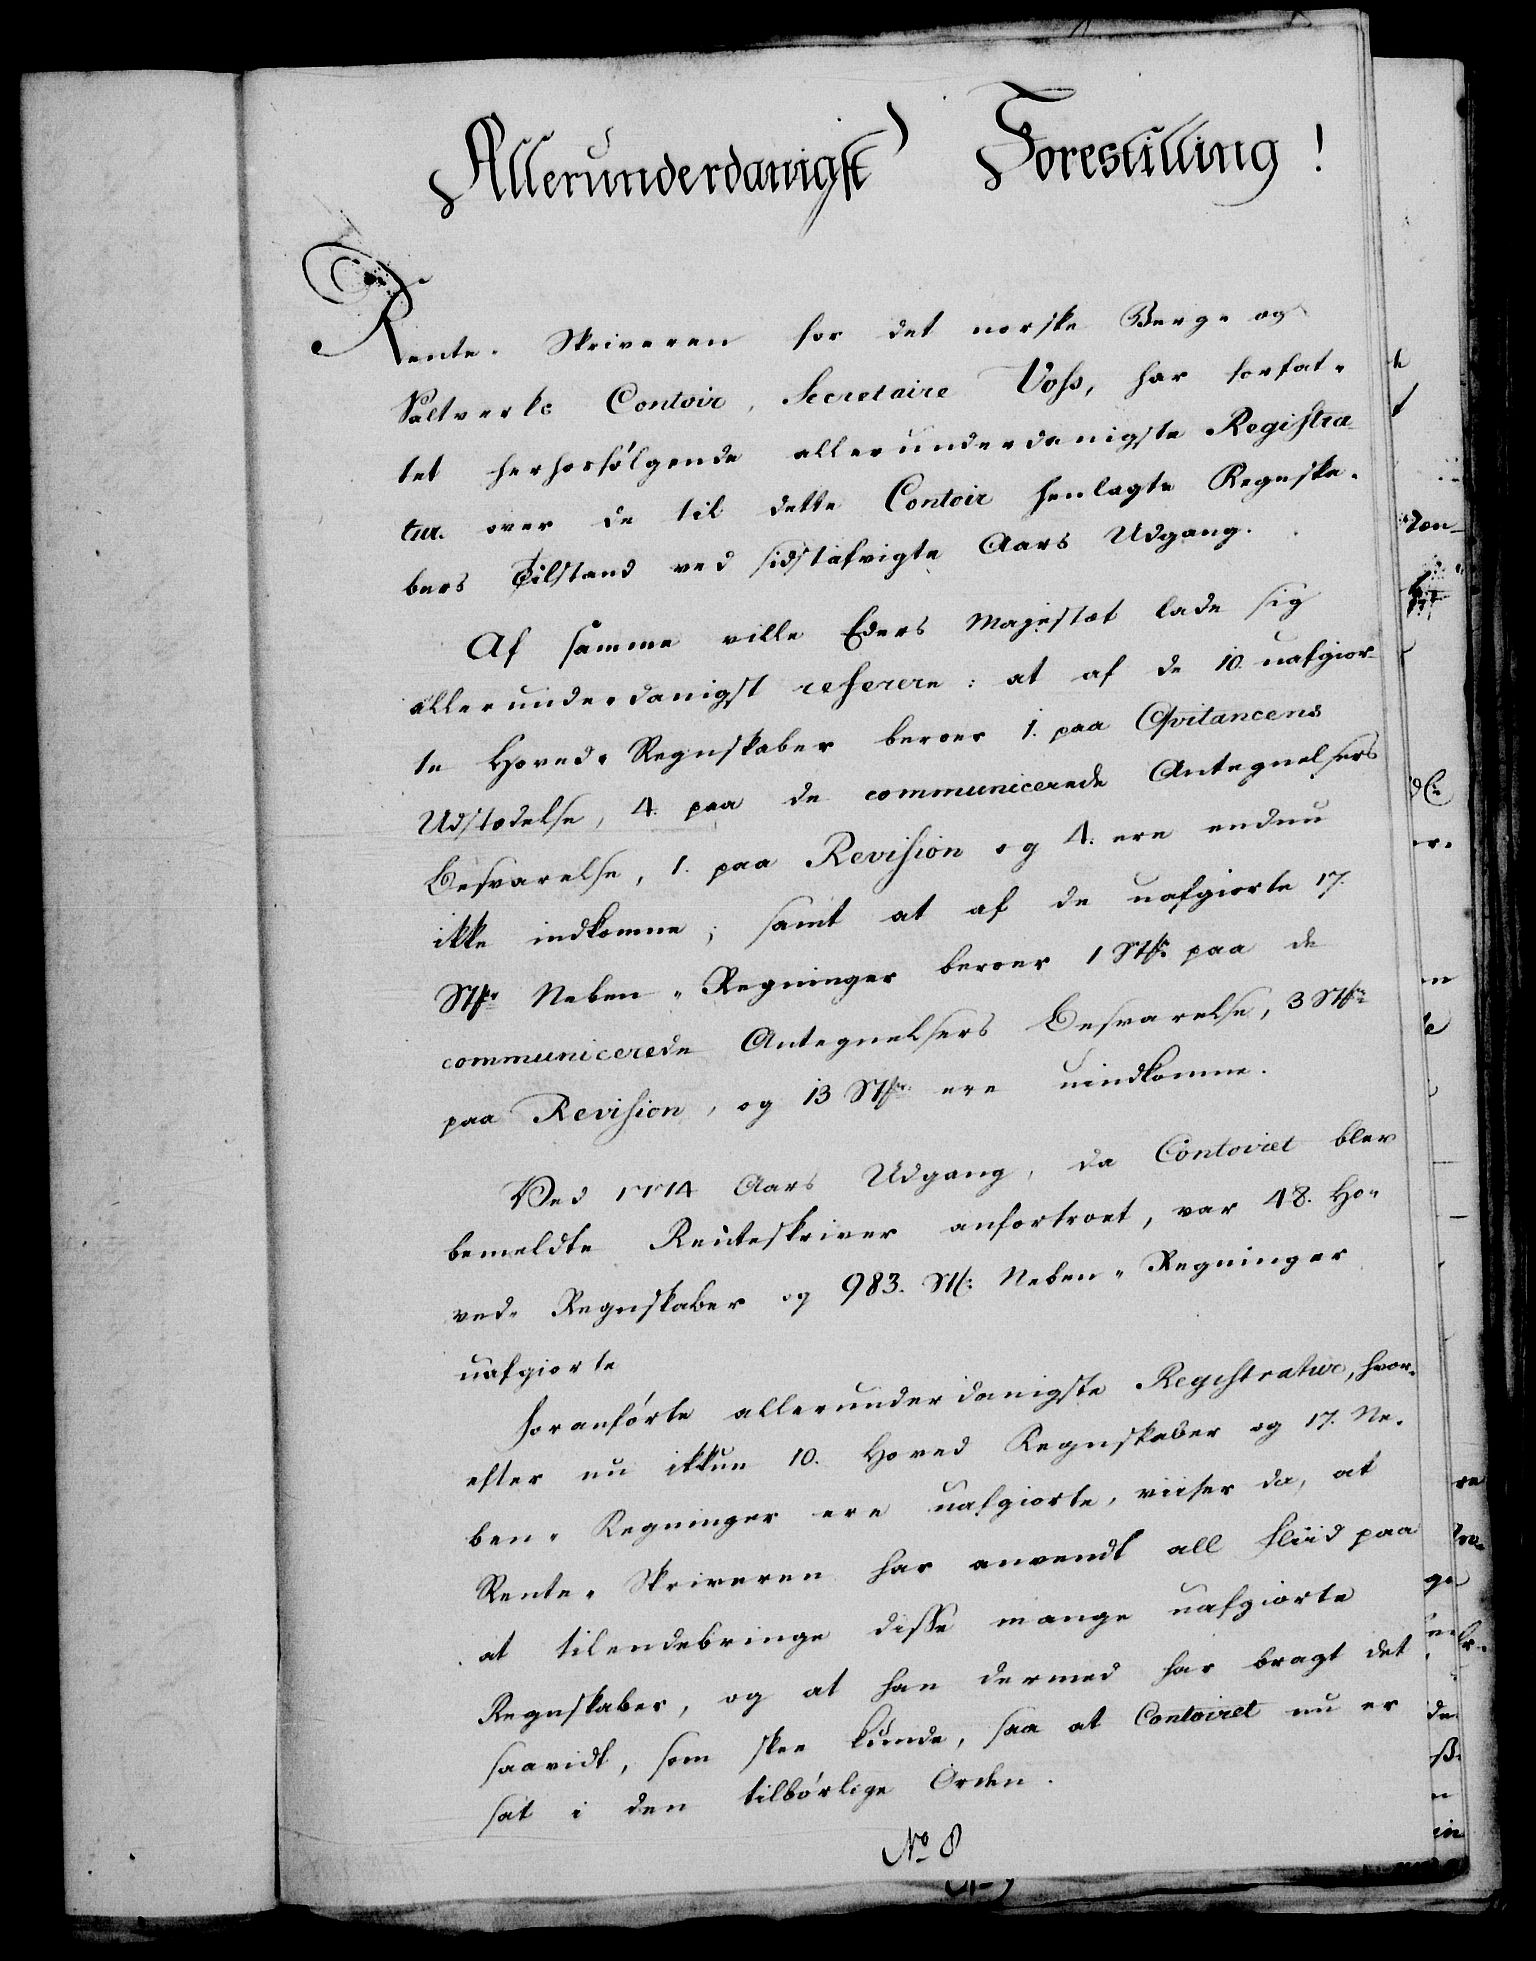 Allerunderdanigst Forestilling!
Rente-Skriveren for det norske Berg- og
Saltverks Contoir, Secretaire Voss, har forfat-
tet herhosfølgende allerunderdanigste Registra-
tur over de til dette Contoir henlagte Regnska-
bers Tilstand ved sidstafvigte Aars Udgang.
Af samme ville Eders Majestæt lade sig
allerunderdanigst referere: at af de 10 uafgior-
te Hoved-Regnskaber beroer 1. paa Qvitancens
Udstædelse, 4. paa de communicerede Antegnelsers
Besvarelse, 1. paa Revision og 4. ere endnu
ikke indkomne; samt at af de uafgiorte 17.
Stkr Neben-Regninger beroer 1 Stk: paa de
communicerede Antegnelsers Besvarelse, 3 Stkr
paa Revision, og 13 Stkr. ere uindkomne.
Ved 1774 Aars Udgang, da Contoiret blev
bemeldte Renteskriver anfortroet, var 48. Ho-
ved-Regnskaber og 983. Stk: Neben-Regninger
uafgiorte
foranførte allerunderdanigste Registratur, hvor-
efter nu ikkun 10. Hoved Regnskaber og 17. Ne-
ben-Regninger ere uafgiorte, viiser da, at
Rente-Skriveren har anvendt all Fliid paa
at tilendebringe disse mange uafgiorte
Regnskaber, og at han dermed har bragt det
saavidt, som skee kunde, saa at Contoiret nu er
sat i den tilbørlige Orden.
No 8